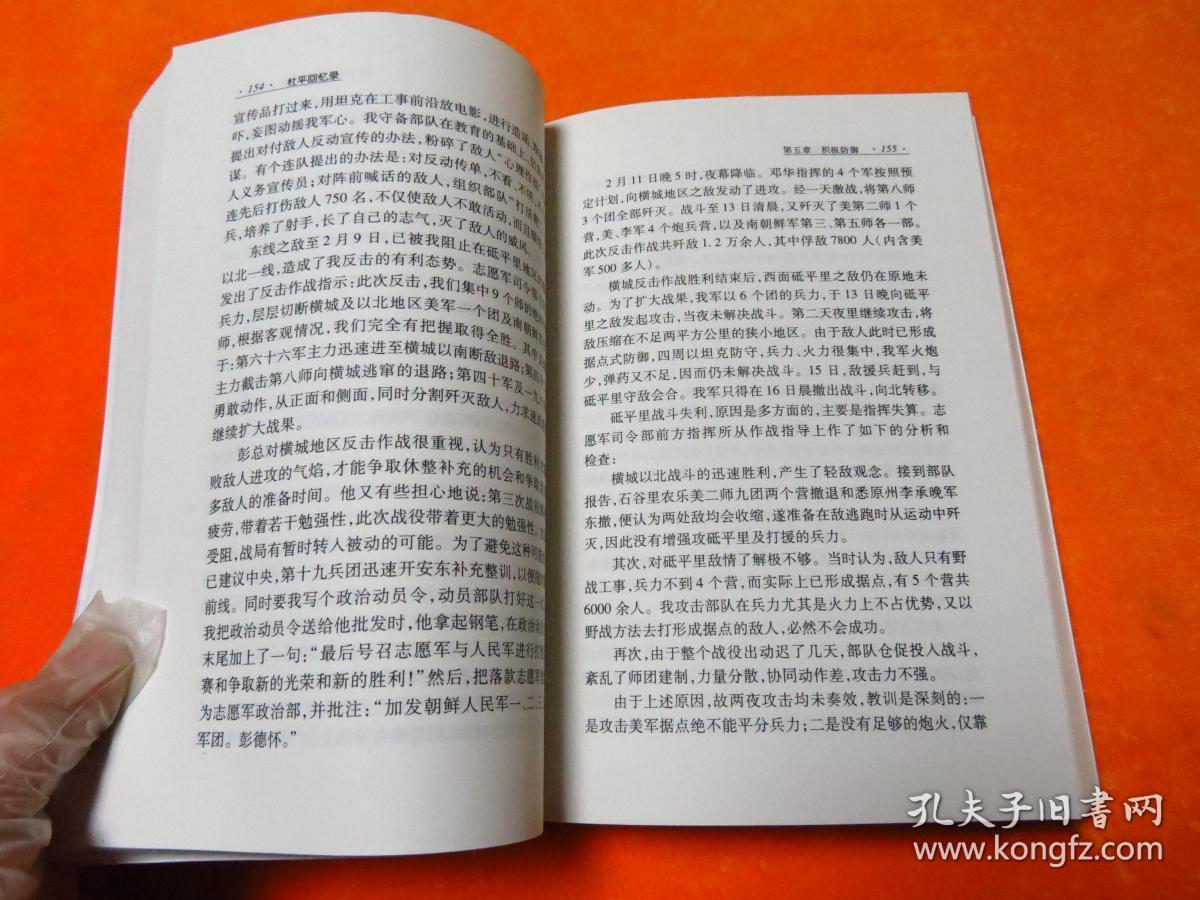 ·154· 杜平回忆录
宣传品打过来，用坦克在工事前沿放电影，进行造谣
吓，妄图动摇我军心。我守备部队在教育的基础上
提出对付敌人反动宣传的办法，粉碎了敌人“心理作
谋。有个连队提出的办法是：对反动传单，不看、不
人义务宣传员；对阵前喊话的敌人，组织部队“打活
连先后打伤敌人750名，不仅使敌人不敢活动，而且
兵，培养了射手，长了自己的志气，灭了敌人的威风。
东线之敌至2月9日，已被我阻止在砥平里地区
以北一线，造成了我反击的有利态势。志愿军司令部
发出了反击作战指示：此次反击，我们集中9个师的
兵力，层层切断横城及以北地区美军一个团及南朝鲜
师，根据客观情况，我们完全有把握取得全胜。其中
于：第六十六军主力迅速进至横城以南断敌退路；第四十
主力截击第八师向横城逃窜的退路；第四十军及一
勇敢动作，从正面和侧面，同时分割歼灭敌人，力求速
继续扩大战果。
彭总对横城地区反击作战很重视，认为只有胜利
败敌人进攻的气焰，才能争取休整补充的机会和争取
多敌人的准备时间。他又有些担心地说：第三次战役
疲劳，带着若干勉强性，此次战役带着更大的勉强性。
受阻，战局有暂时转入被动的可能。为了避免这种可
已建议中央，第十九兵团迅速开安东补充整训，以便随
前线。同时要我写个政治动员令，动员部队打好这一
我把政治动员令送给他批发时，他拿起钢笔，在政治
末尾加上了一句：“最后号召志愿军与人民军进行
赛和争取新的光荣和新的胜利！”然后，把落款志愿军
为志愿军政治部，并批注：“加发朝鲜人民军一、二、三
军团。彭德怀。”
第五章 积极防御 ·155·
2月11日晚5时，夜幕降临。邓华指挥的4个军按照预
定计划，向横城地区之敌发动了进攻。经一天激战，将第八师
3个团全部歼灭。战斗至13日清晨，又歼灭了美第二师1个
营，美、李军4个炮兵营，以及南朝鲜军第三、第五师各一部。
此次反击作战共歼敌1.2万余人，其中俘敌7800人（内含美
军500多人）。
横城反击作战胜利结束后，西面砥平里之敌仍在原地未
动。为了扩大战果，我军以6个团的兵力，于13日晚向砥平
里之敌发起攻击，当夜未解决战斗。第二天夜里继续攻击，将
敌压缩在不足两平方公里的狭小地区。由于敌人此时已形成
据点式防御，四周以坦克防守，兵力、火力很集中，我军火炮
少，弹药又不足，因而仍未解决战斗。15日，敌援兵赶到，与
砥平里守敌会合。我军只得在16日晨撤出战斗，向北转移。
砥平里战斗失利，原因是多方面的，主要是指挥失算。志
愿军司令部前方指挥所从作战指导上作了如下的分析和
检查：
横城以北战斗的迅速胜利，产生了轻敌观念。接到部队
报告，石谷里农乐美二师九团两个营撤退和悉原州李承晚军
东撤，便认为两处敌均会收缩，遂准备在敌逃跑时从运动中歼
灭，因此没有增强攻砥平里及打援的兵力。
其次，对砥平里敌情了解极不够。当时认为，敌人只有野
战工事，兵力不到4个营，而实际上已形成据点，有5个营共
6000余人。我攻击部队在兵力尤其是火力上不占优势，又以
野战方法去打形成据点的敌人，必然不会成功。
再次，由于整个战役出动迟了几天，部队仓促投入战斗，
紊乱了师团建制，力量分散，协同动作差，攻击力不强。
由于上述原因，故两夜攻击均未奏效，教训是深刻的：一
是攻击美军据点绝不能平分兵力；二是没有足够的炮火，仅靠
孔夫子旧书网
www.kongfz.com